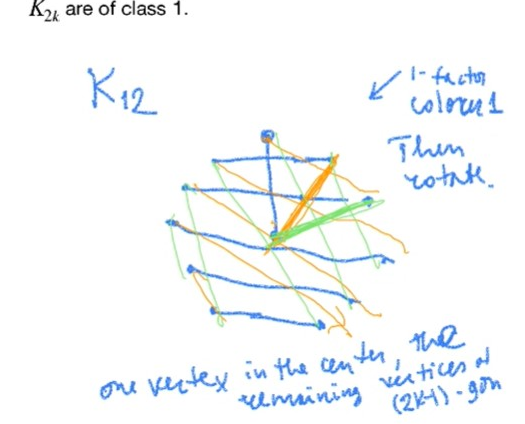 K2k are of class 1.
K12
1-factor
colored 1
Then
rotate.
one vertex in the center, the
remaining vertices of
(2k-1)-gon